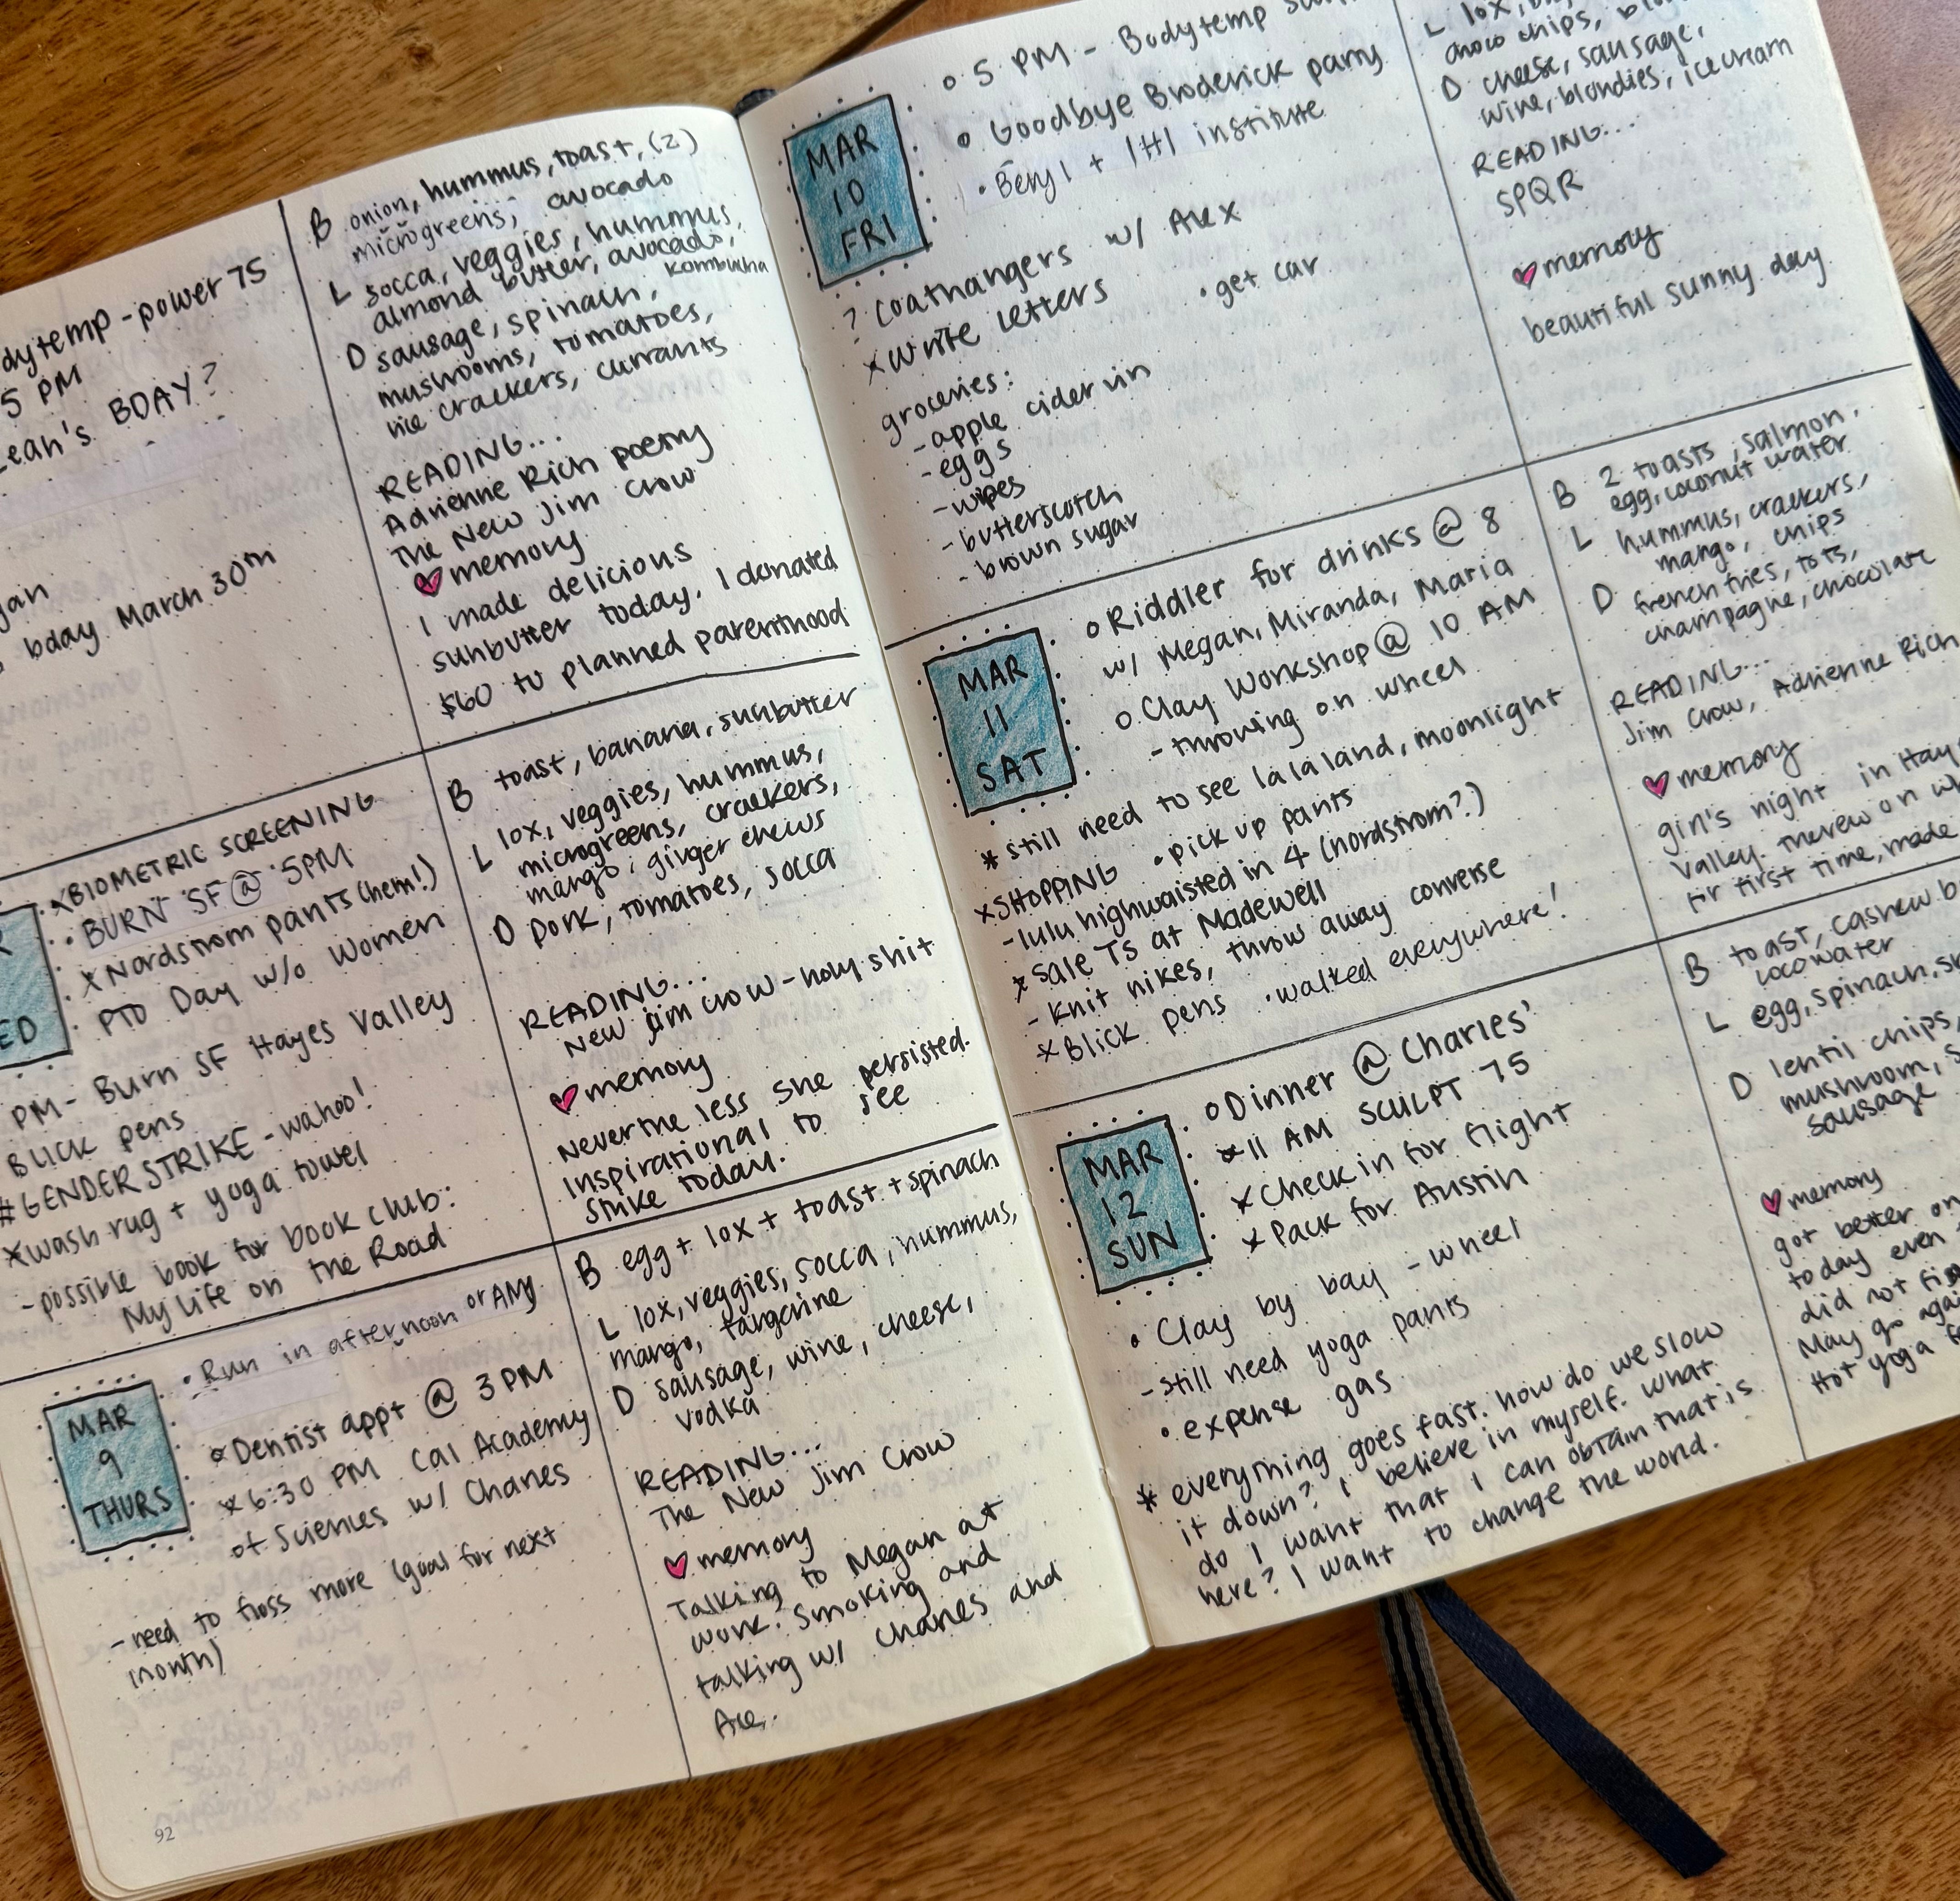 dytemp - power 75
5 PM
Leah's BDAY?
gan
bday March 30th
B onion, hummus, toast, (2)
microgreens, avocado
L socca, veggies, hummus,
almond butter, avocado,
kombucha
D sausage, spinach,
mushrooms, tomatoes,
rice crackers, currants
READING...
Adrienne Rich poetry
The New Jim Crow
memory
I made delicious
sunbutter today. I donated
$60 to planned parenthood
ED
x BIOMETRIC SCREENING
• BURN SF @ 5PM
x Nordstrom pants (hem!)
PTO Day w/o Women
PM - Burn SF Hayes Valley
BLICK pens
# GENDER STRIKE - wahoo!
x wash rug + yoga towel
- possible book for book club:
My Life on the Road
B toast, banana, sunbutter
L lox, veggies, hummus,
microgreens, crackers,
mango, ginger chews
D pork, tomatoes, socca
READING...
New Jim Crow - holy shit
memory
Nevertheless she persisted.
Inspirational to see
strike today.
MAR
9
THURS
• Run in afternoon or AM
Dentist appt @ 3 PM
x 6:30 PM Cal Academy
of Sciences w/ Charles
- need to floss more (goal for next
month)
B egg + lox + toast + spinach
L lox, veggies, socca, hummus,
mango, tangerine
D sausage, wine, cheese,
vodka
READING...
The New Jim Crow
memory
Talking to Megan at
work. Smoking and
talking w/ Charles and
92
MAR
10
FRI
5 PM - Bodytemp
Goodbye Broderick party
• Beryl + IHI institute
? Coathangers w/ Alex
x Write letters
• get car
groceries:
- apple cider vin
- eggs
- wipes
- butterscotch
- brown sugar
L lox,
choco chips,
D cheese, sausage,
wine, blondies, icecream
READING...
SPQR
memory
beautiful sunny day
MAR
11
SAT
o Riddler for drinks @ 8
w/ Megan, Miranda, Maria
o Clay Workshop @ 10 AM
- throwing on wheel
* still need to see lalaland, moonlight
x SHOPPING • pick up pants
- lulu highwaisted in 4 (nordstrom?)
x Sale TS at Madewell
- Knit nikes, throw away converse
x Blick pens • walked everywhere!
B 2 toasts, salmon,
egg, coconut water
L hummus, crackers,
mango, chips
D french fries, tots,
champagne, chocolate
READING...
Jim Crow, Adrienne Rich
memory
girl's night in Hayes
Valley. Threw on
for first time, made
MAR
12
SUN
o Dinner @ Charles'
x 11 AM SCULPT 75
x Check in for flight
x Pack for Austin
• Clay by bay - wheel
- still need yoga pants
• expense gas
* everything goes fast. how do we slow
it down? I believe in myself. What
do I want that I can obtain that is
here? I want to change the world.
B toast, cashew
cocowater
L egg, spinach,
D lentil chips,
mushroom,
sausage
memory
got better on
today even
did not
May go again
Hot yoga